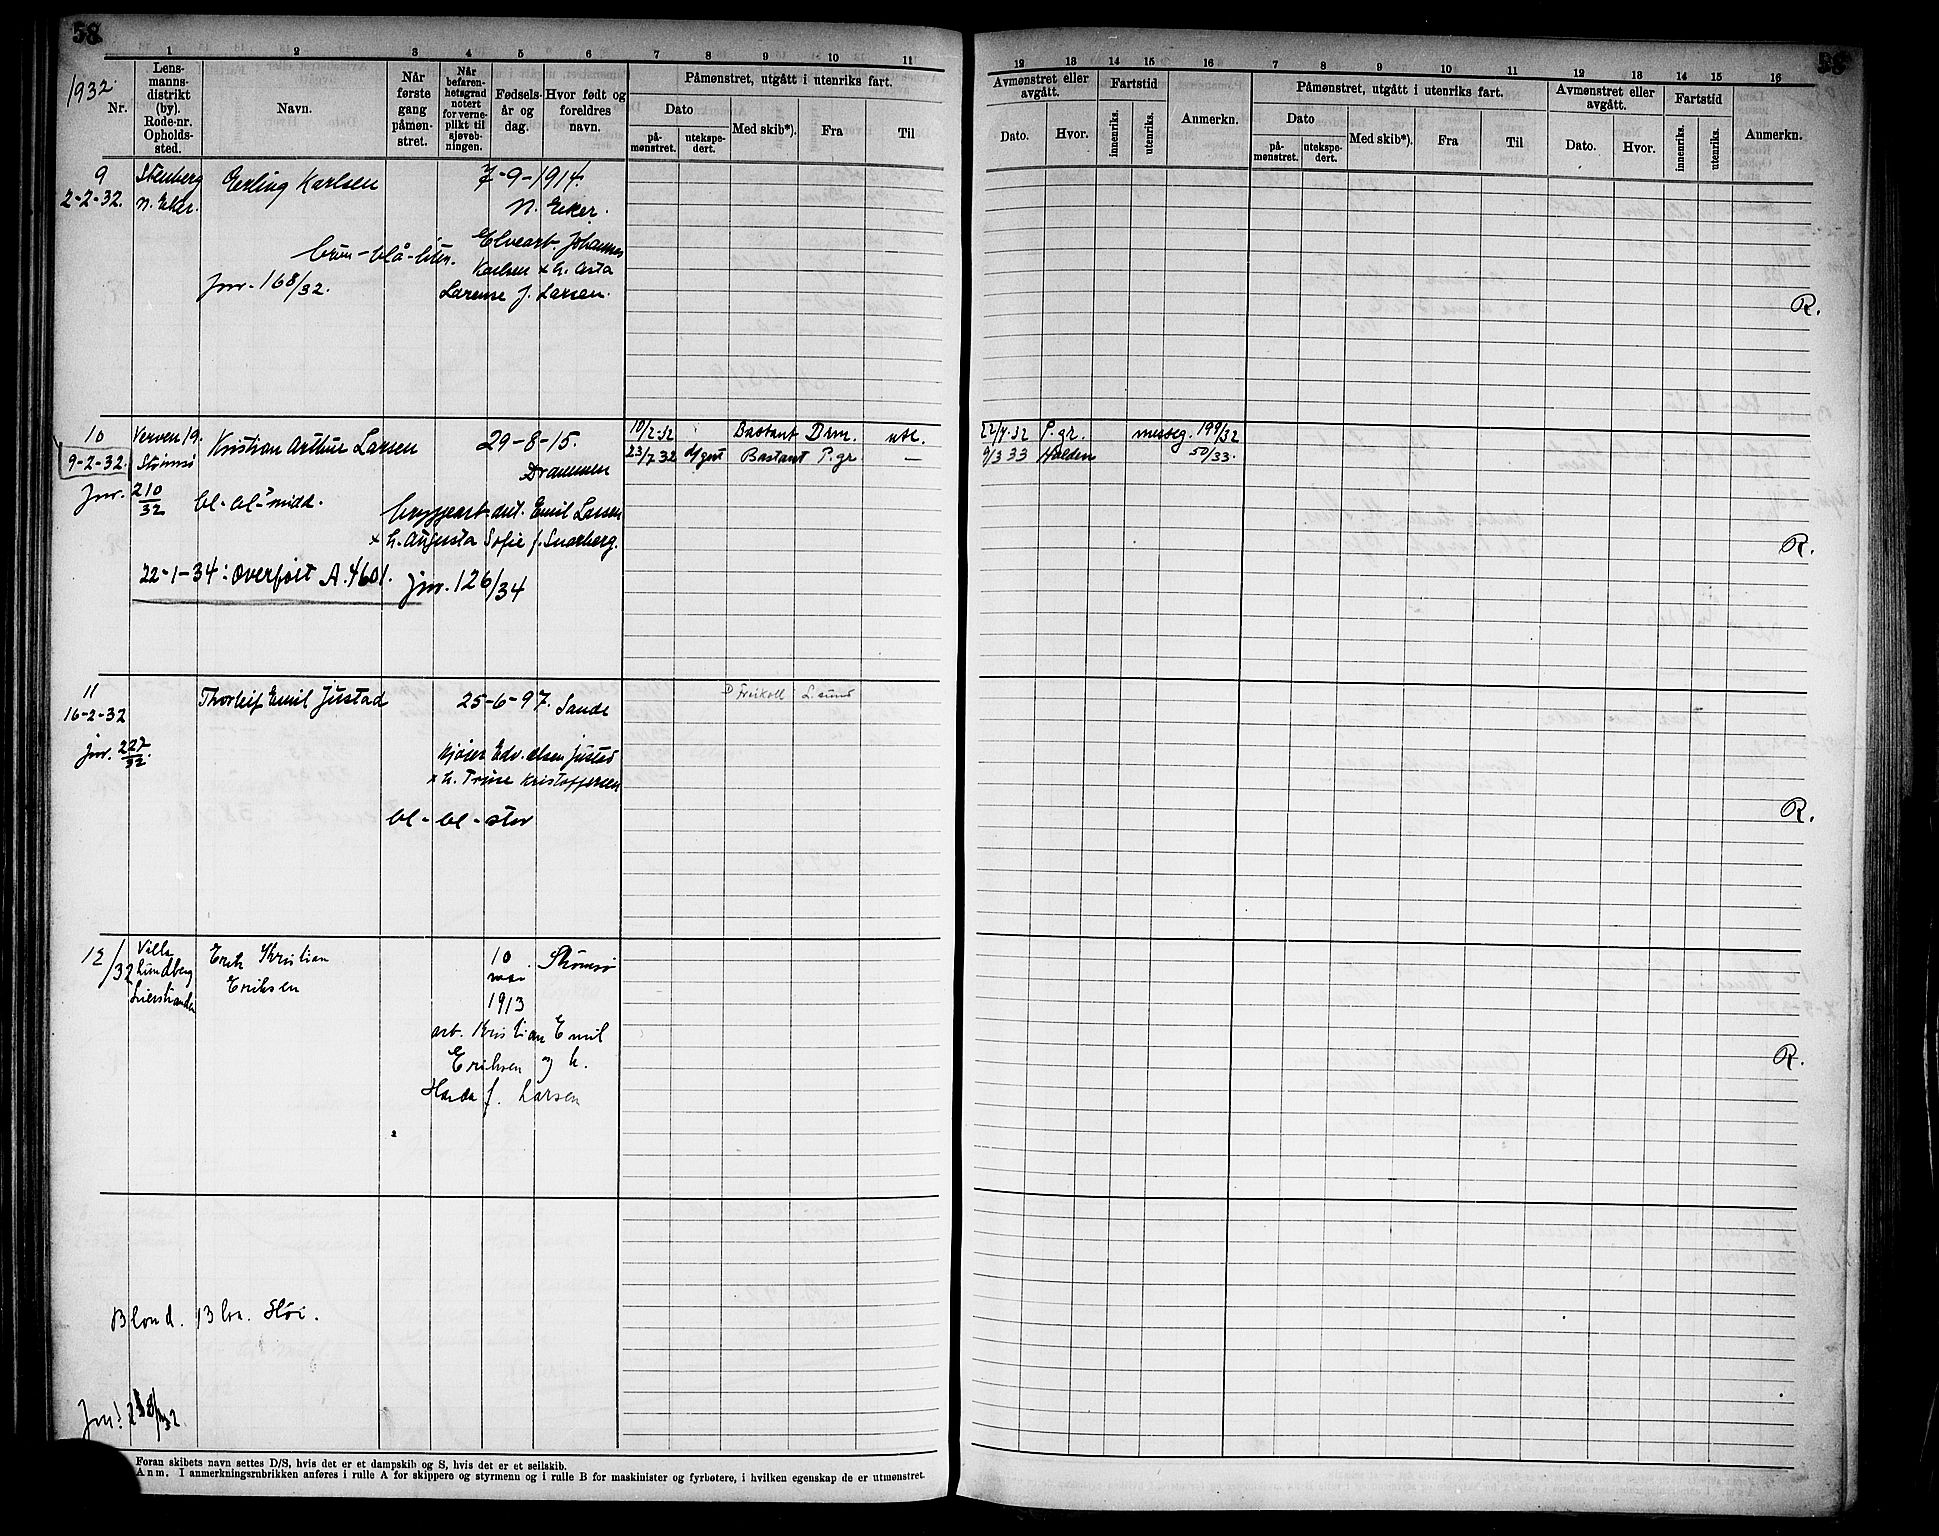 58
58
1 2 3 4 5 6 7 8 9 10 11
12 13 14 15 16 7 8 9 10 11 12 13 14 15 16
1932.
Nr.
Lens-
manns-
distrikt
(by).
Rode-nr.
Opholds-
sted.
Navn.
Når
første
gang
påmøn-
stret.
Når
befaren-
hetsgrad
notert
for verne-
plikt til
sjøveb-
ningen.
Fødsels-
år og
dag.
Hvor født og
foreldres
navn.
Påmønstret, utgått i utenriks fart.
Dato
på-
mønstret.
utekspe-
dert.
Med skib*).
Fra
Til
Avmønstret eller
avgått.
Dato.
Hvor.
Fartstid
innenriks.
utenriks.
Anmerkn.
Påmønstret, utgått i utenriks fart.
Dato
på-
mønstret.
utekspe-
dert.
Med skib*).
Fra
Til
Avmønstret eller
avgått.
Dato.
Hvor.
Fartstid
innenriks.
utenriks.
Anmerkn.
9 Stenberg Erling Karlsen 7-9-1914.
2-2-32. N. Eker. N. Eker.
Elvearb. Johannes
brun-blå-liten. Karlsen x h. Asta
Jnr. 168/32. Larense f. Larsen.
R.
10 Verven 19. Kristian Arthur Larsen 29-8-15. 10/2-32 Bastant Drm. utl. 22/7-32 P.gr. 199/32
9-2-32. Strømsø Drammen 23/7 32 Bastant P.gr — 9/3 33 Halden 50/33.
Jnr. 210/32 bl-bl-midd. bryggearb. Emil Larsen
x h. Augusta Sofie f. Snarberg.
R.
22-1-34: Overført A.4601. Jnr. 126/34
11 Thorleif Emil Justad 25-6-97. Sande Freikoll L.sund
16-2-32
Jnr. 227/32. Edv. Olsen Justad
x h. Trine Kristoffersen
bl-bl-stor
R.
12/32 Villa Erik Kristian 10 Strømsø
Lundberg Eriksen mai
Lierstranden 1913
arb. Kristian Emil
Eriksen og h.
f. Larsen
R.
Blond. Bla. Høi.
Jnr.
Foran skibets navn settes D/S, hvis det er et dampskib og S, hvis det er et seilskib.
Anm. I anmerkningsrubrikken anføres i rulle A for skippere og styrmenn og i rulle B for maskinister og fyrbøtere, i hvilken egenskap de er utmønstret.